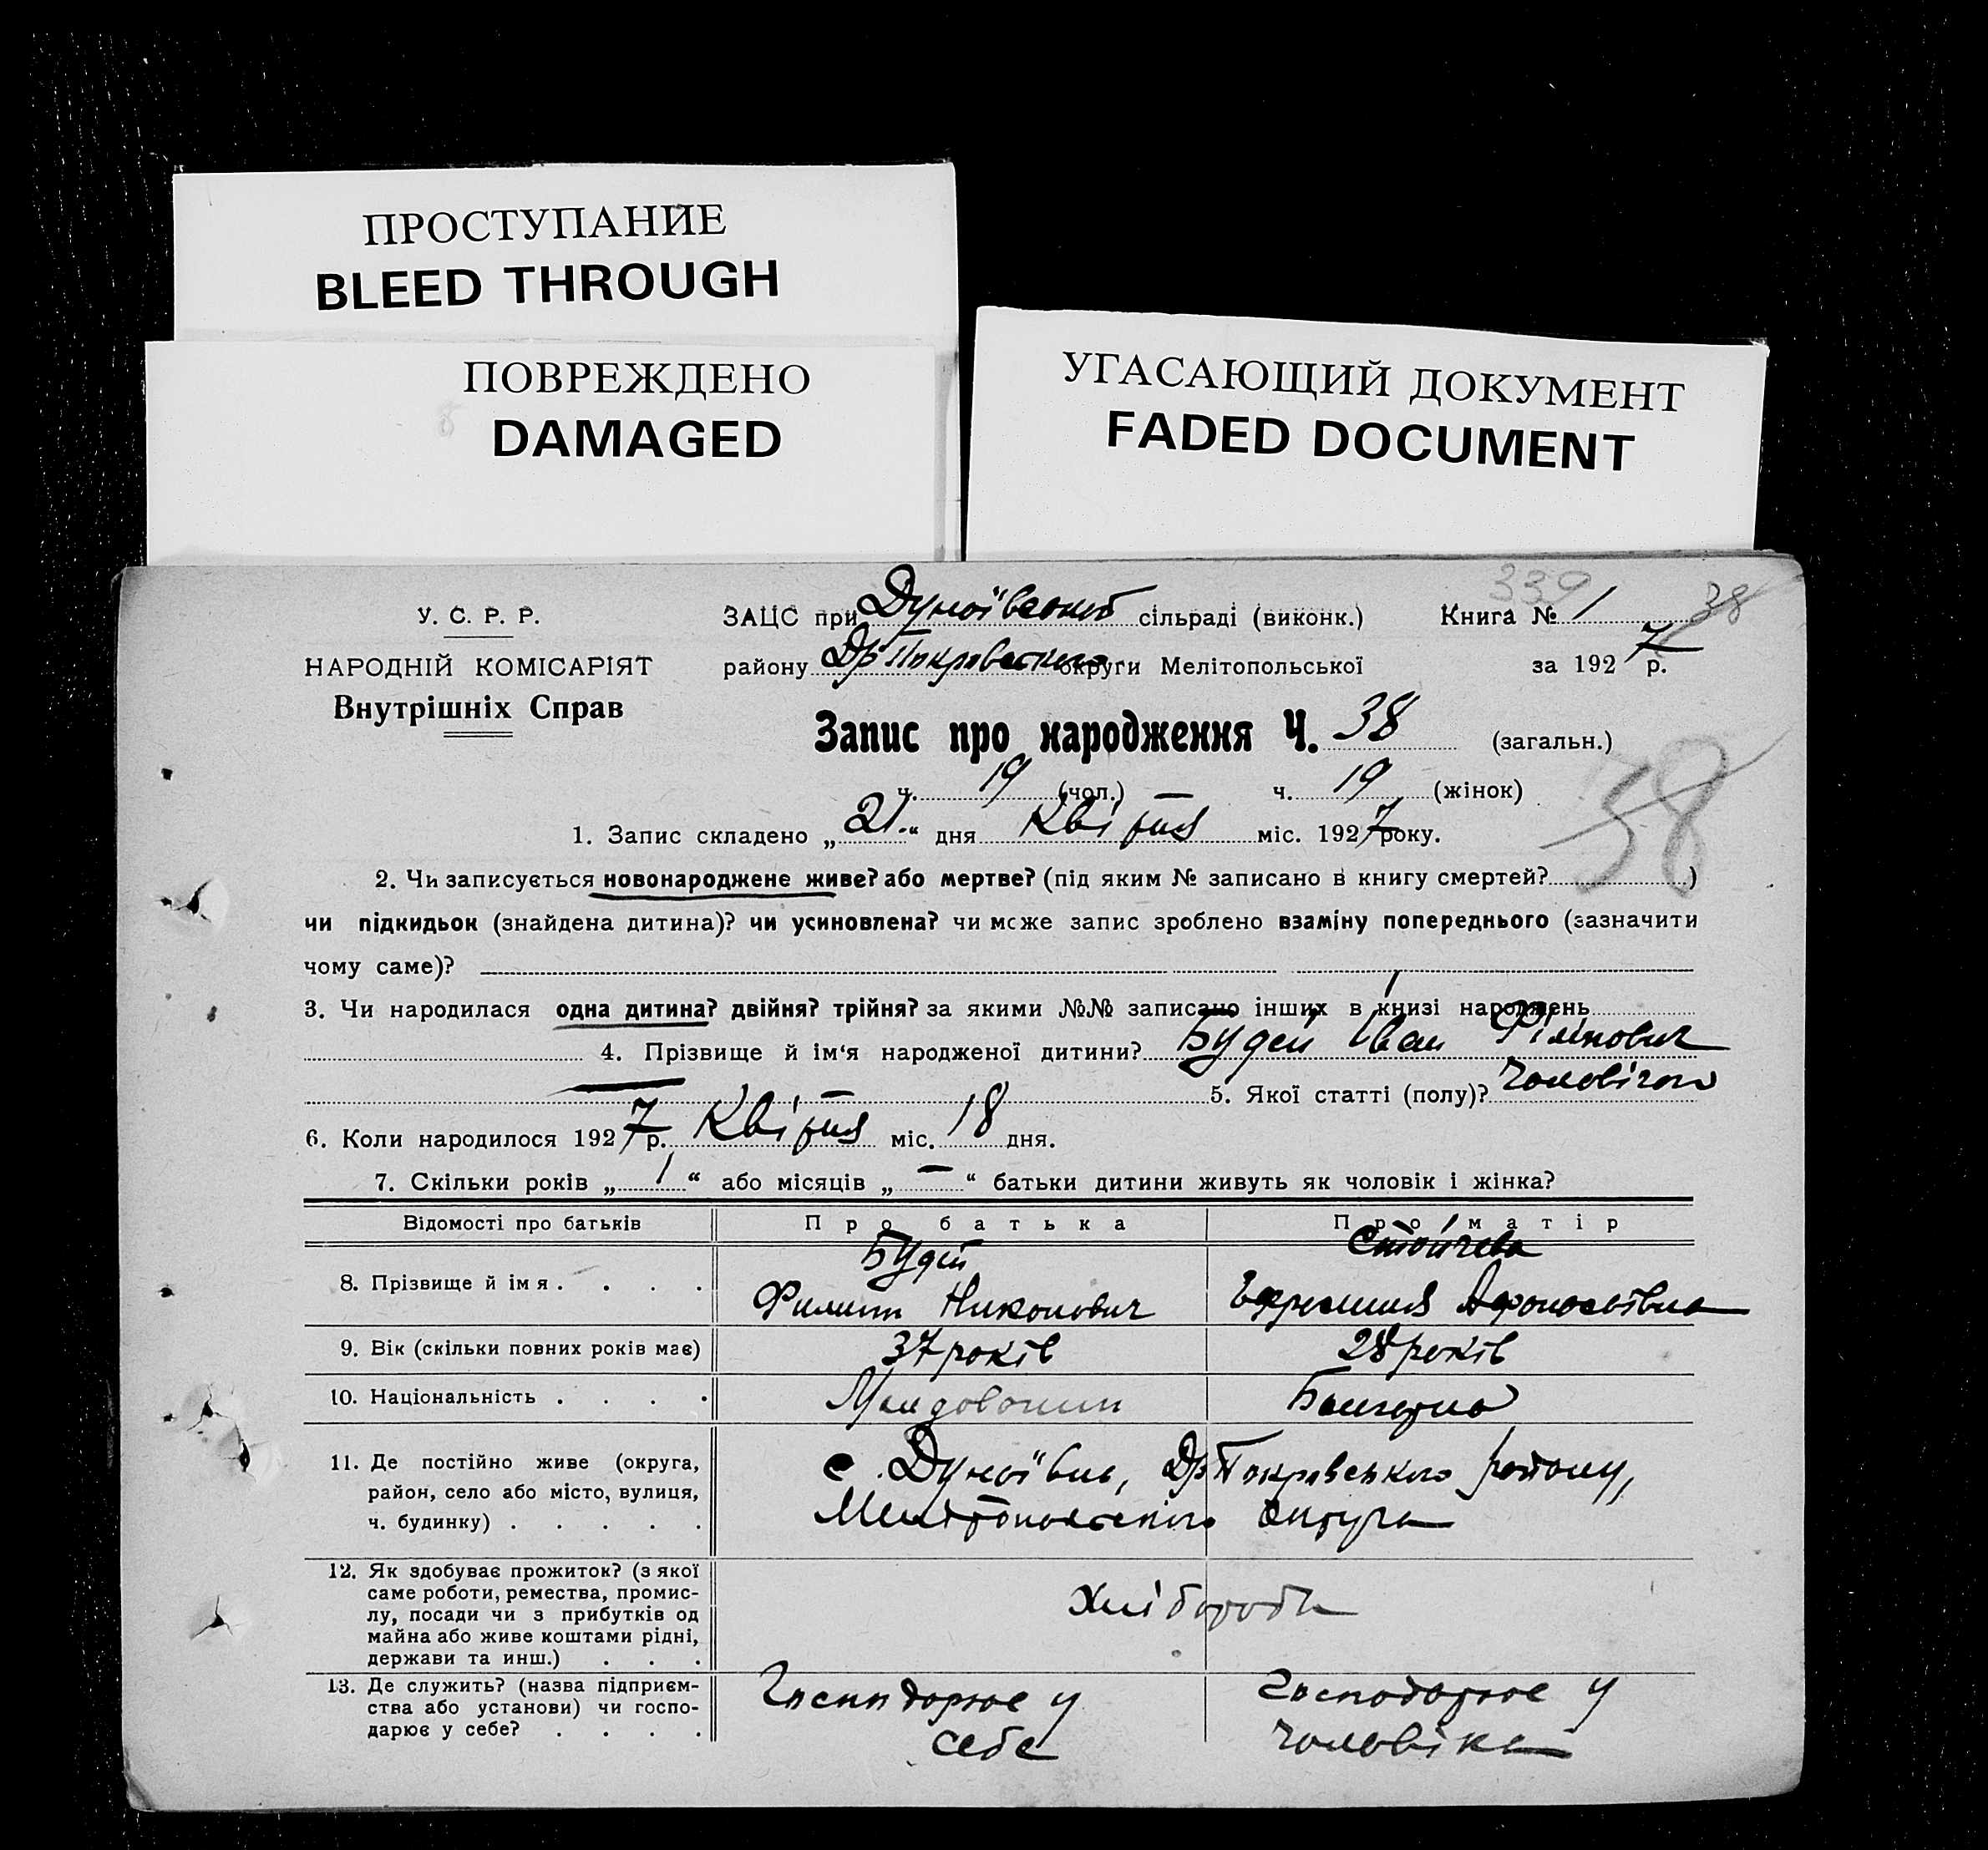 ПРОСТУПАНИЕ
BLEED THROUGH
ПОВРЕЖДЕНО
DAMAGED
УГАСАЮЩИЙ ДОКУМЕНТ
FADED DOCUMENT
339 38
У. С. Р. Р.
НАРОДНІЙ КОМІСАРІЯТ
Внутрішніх Справ
ЗАЦС при Дунаївській сільраді (виконк.) Книга № 1
району Др Покровського округи Мелітопольської за 1927 р.
Запис про народження Ч. 38 (загальн.)
ч. 19 (чол.) ч. 19 (жінок)
38
1. Запис складено „21“ дня Квітня міс. 1927 року.
2. Чи записується новонароджене живе? або мертве? (під яким № записано в книгу смертей? )
чи підкидьок (знайдена дитина)? чи усиновлена? чи може запис зроблено взаміну попереднього (зазначити
чому саме)?
3. Чи народилася одна дитина? двійня? трійня? за якими №№ записано інших в книзі народжень
4. Прізвище й ім‘я народженої дитини? Будей Іван Філіпович
5. Якої статті (полу)? Чоловічого
6. Коли народилося 1927 р. Квітня міс. 18 дня.
7. Скільки років „1“ або місяців „—“ батьки дитини живуть як чоловік і жінка?
Відомості про батьків Про батька Про матір
8. Прізвище й ім я . . . . Будей Стойчева
Филип Никонович Ефросиния Афонасівна
9. Вік (скільки повних років має) 37 років 28 років
10. Національність . . . . Молдованин Болгарка
11. Де постійно живе (округа,
район, село або місто, вулиця,
ч. будинку) . . . . .
с. Дунаївка, Др Покровського району,
Мелітопольського округа
12. Як здобуває прожиток? (з якої
саме роботи, ремества, промис-
лу, посади чи з прибутків од
майна або живе коштами рідні,
держави та инш.) . . .
Хлібороби
13. Де служить? (назва підприєм-
ства або установи) чи госпо-
дарює у себе? . . . .
Господорює у
себе
Господорює у
чоловіка